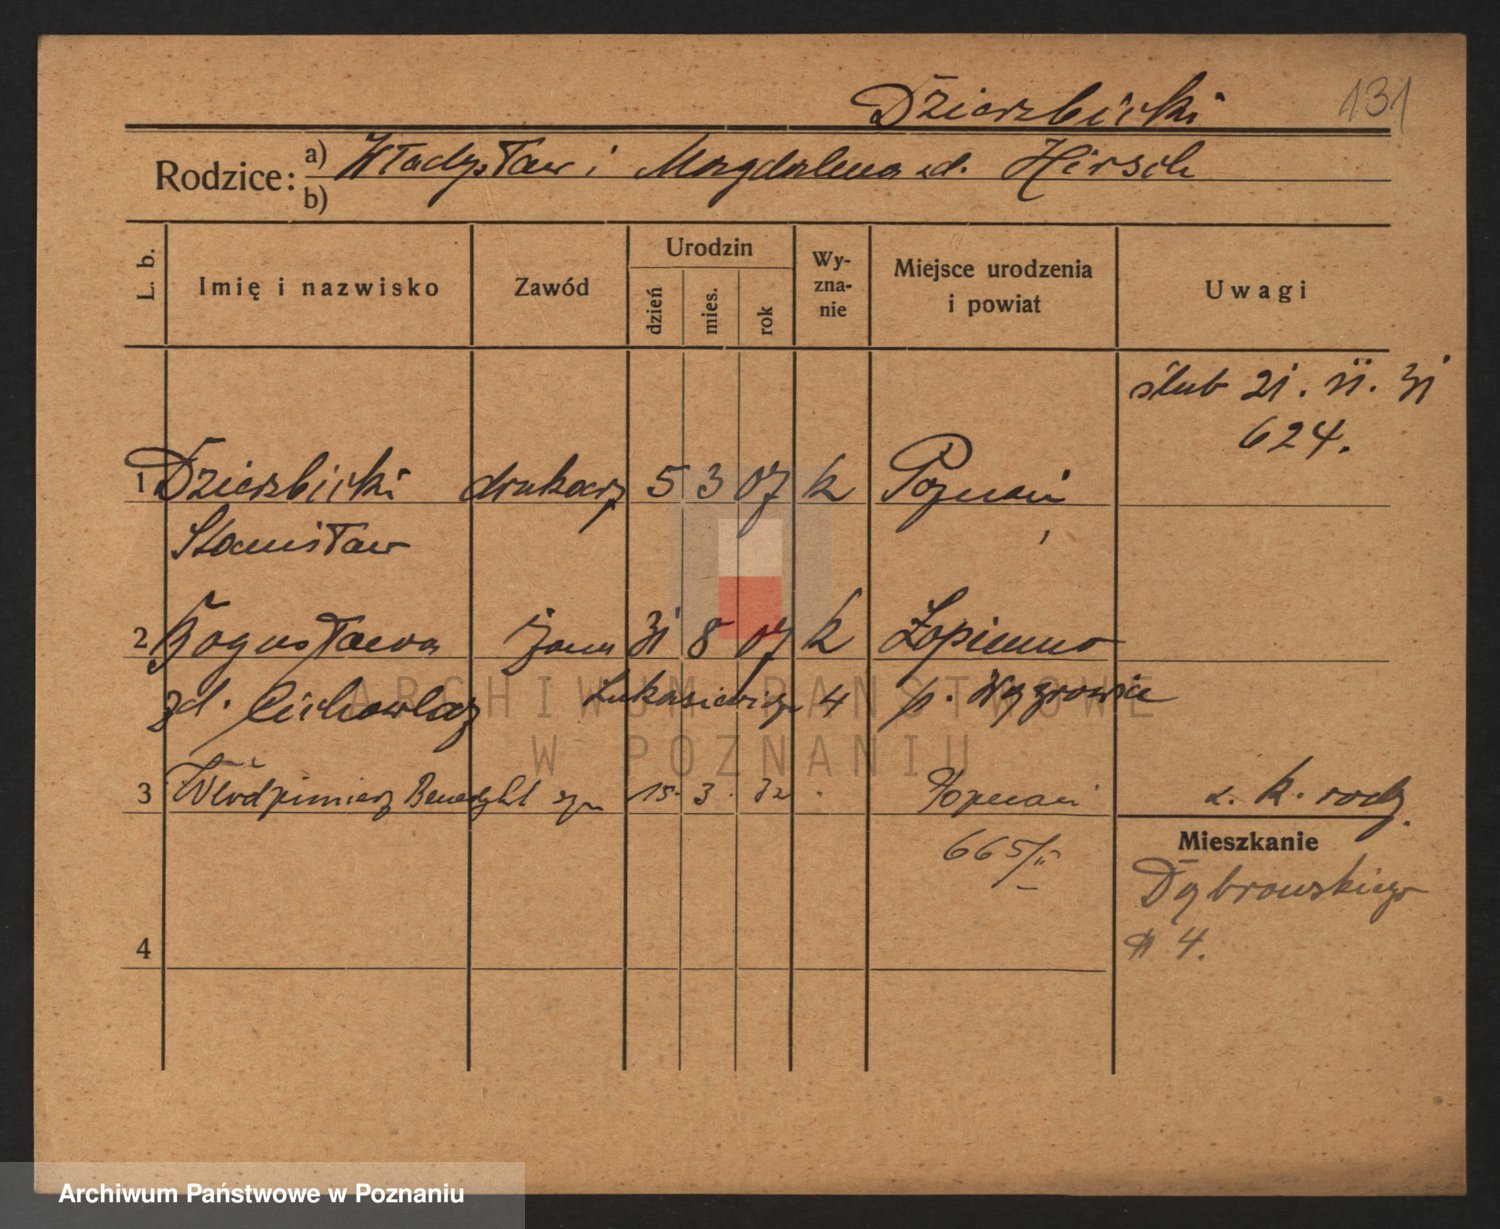 Dzierzbicki 131
Rodzice: a) Władysław i Magdalena zd. Hirsch
b)
L. b. Imię i nazwisko Zawód Urodzin dzień mies. rok Wy-zna-nie Miejsce urodzenia i powiat Uwagi
ślub 21. 11. 31
624.
1 Dzierzbicki drukarz 5 3 07 k Poznań
Stanisław
2 Bogusława żona 31 8 07 k Łopienno
zd. Cichowlaz Łukasiewicza 4 p. Wągrowiec
3 Włodzimierz Benedykt syn 15. 3. 32 Poznań z. k. rodz.
665/II
Mieszkanie
Dąbrowskiego
4.
4
ARCHIWUM PAŃSTWOWE
W POZNANIU
Archiwum Państwowe w Poznaniu